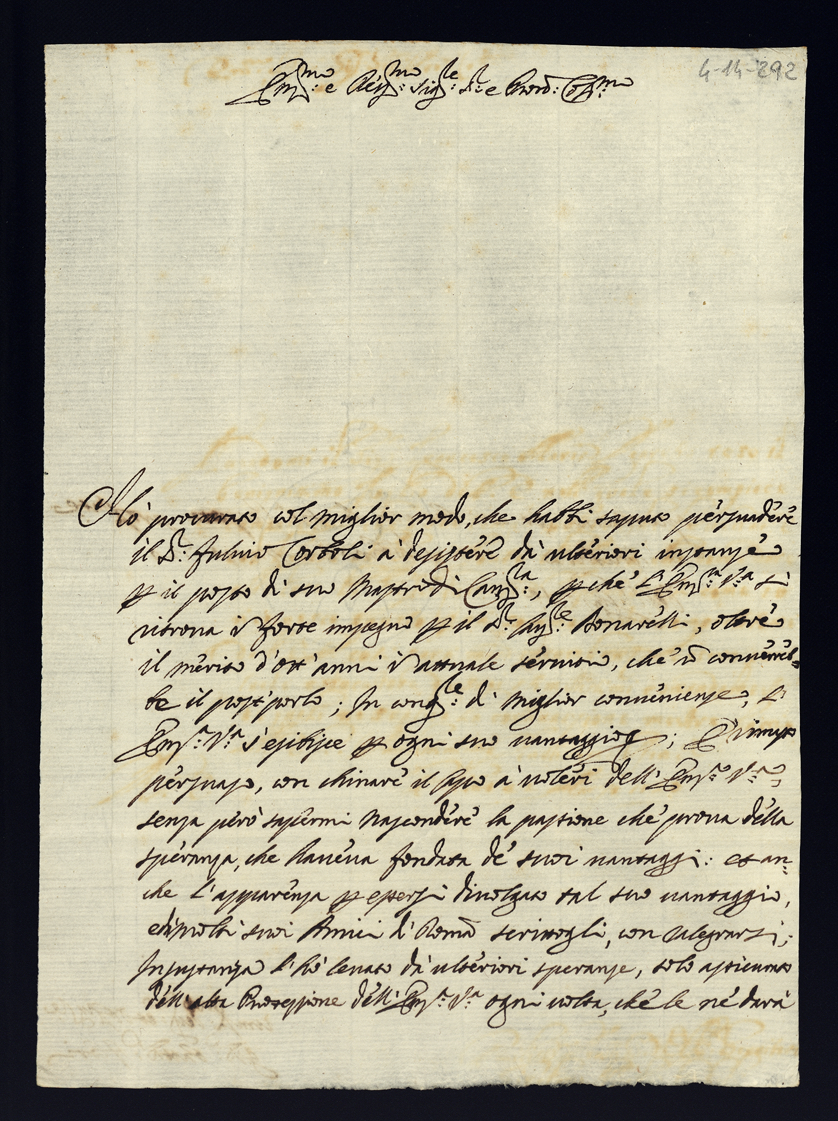 4-14-292
Em.mo e Rev.mo Sig.re S.r e Pron: Col.mo
Hò procurato col miglior modo, che habbi saputo persuadere
il S.r Fulvio Corboli à desistere dà ulteriori instanze
p il posto di suo Mastro di Cam.ra, p che l'Em.a V.a si
ritrova ĩ forte impegno p il S.r Bonarelli, oltre
il merito d'ott'anni ĩ attuale servitio, che ñ converreb=
be il postporlo; In di miglior convenienze, l'
Em.a V.a s'esibisce p ogni suo vantaggio; È rimasto
persuaso, con chinare il Capo à voleri dell'Em.a V.a,
senza però sapermi nascondere la passione che prova della
speranza, che haveva fondata de suoi vantaggi: et an=
che l'apparenza p essersi divulgato tal suo vantaggio,
e di molti suoi Amici di Roma scrittogli, con ralegrarsi;
In sustanza l'hò levato dà ulteriori speranze, solo assicurato
dell'alta Protezzione dell'Em.a V.a ogni volta, che le ne darà